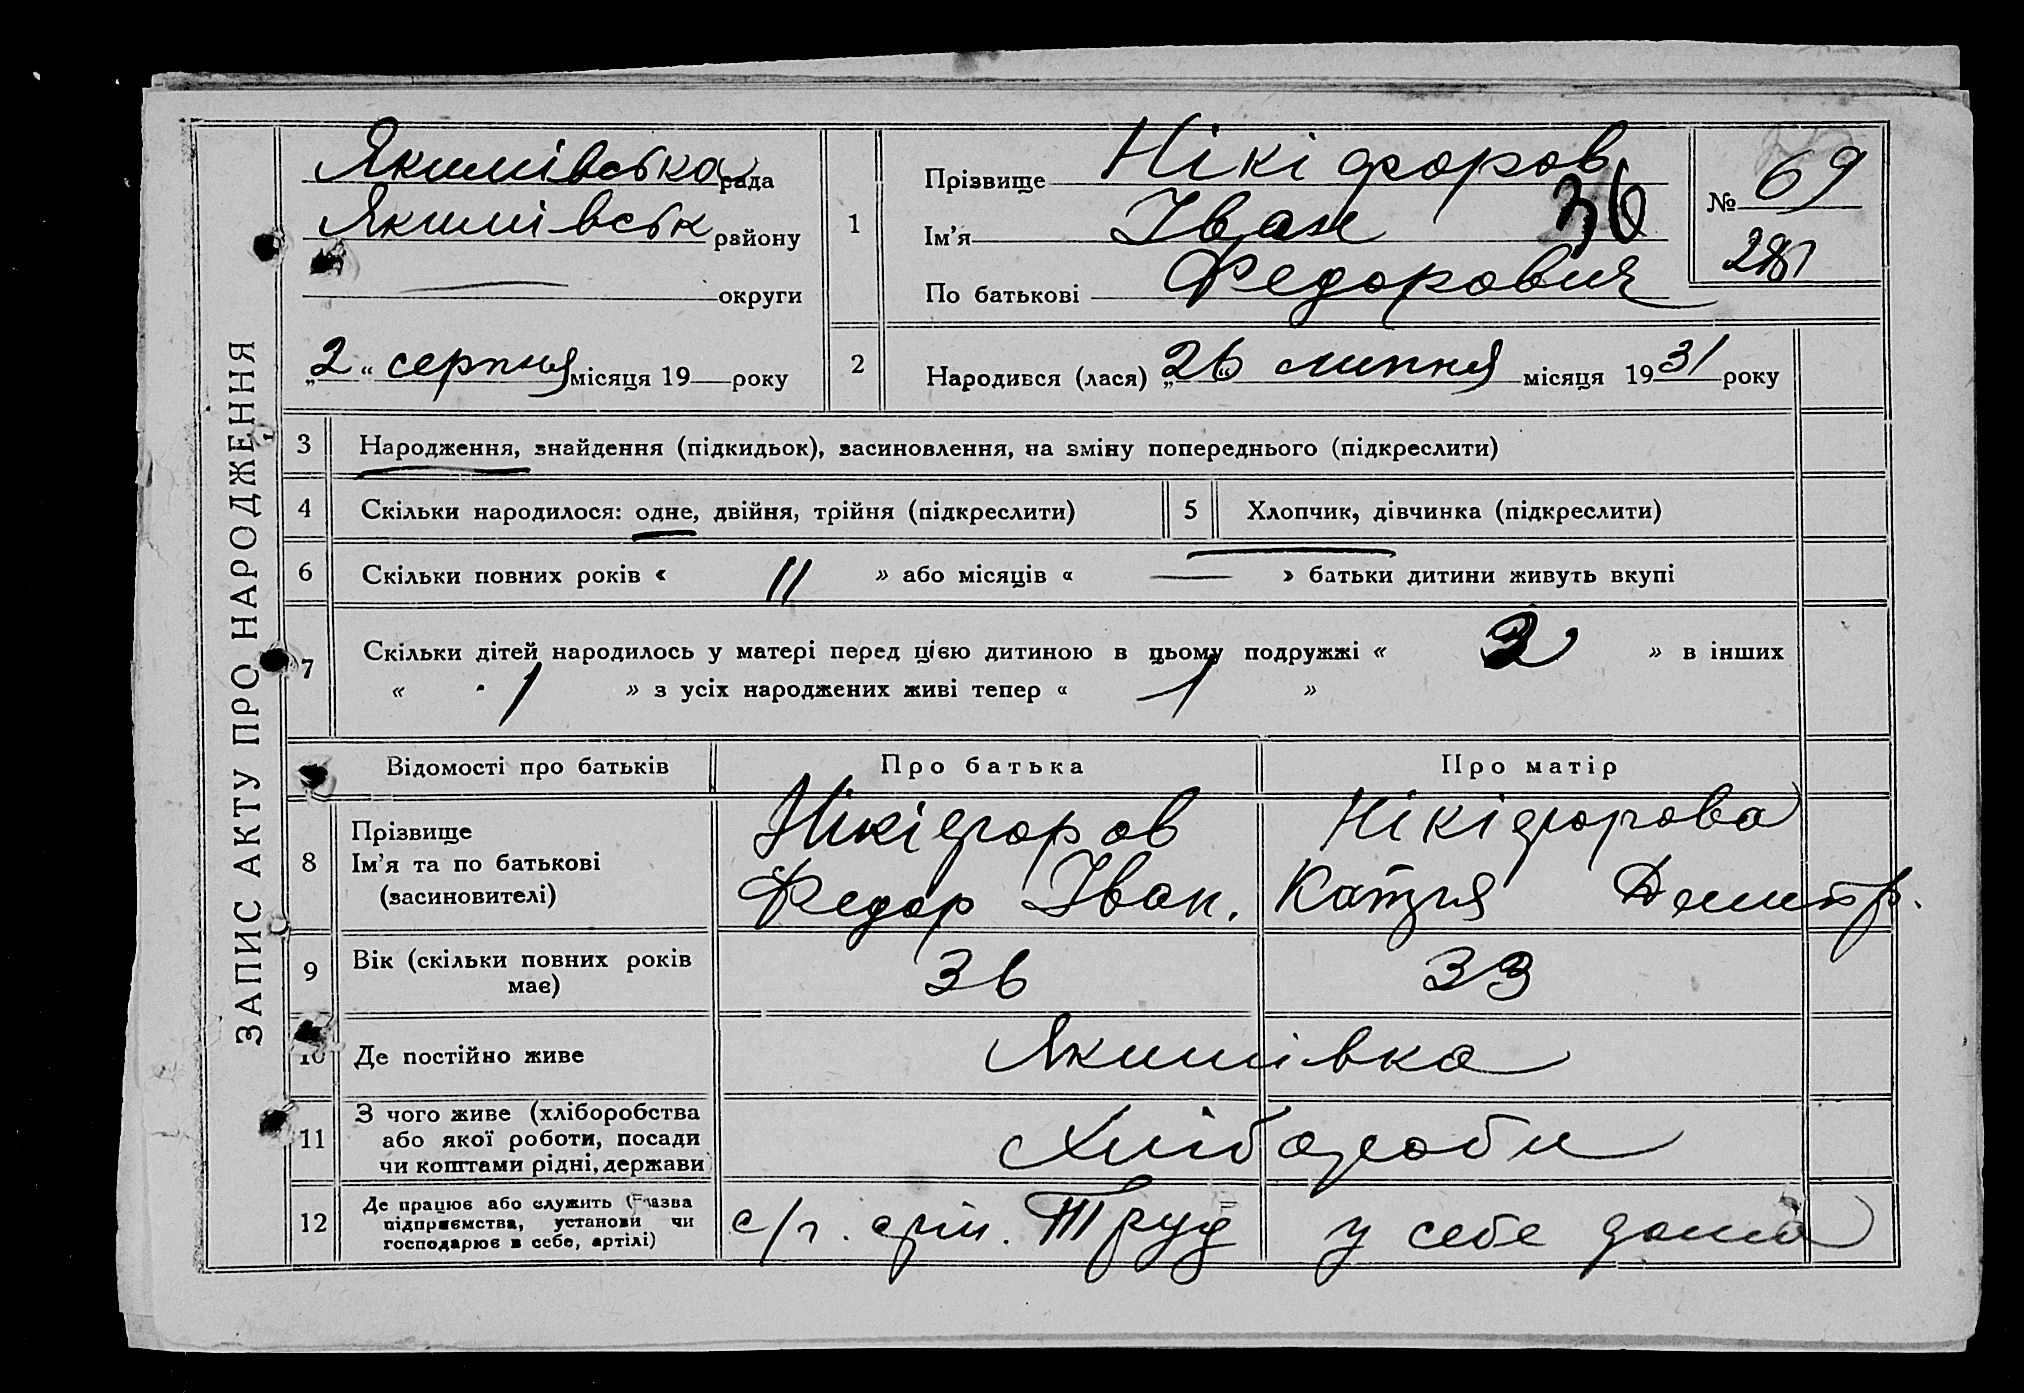 ЗАПИС АКТУ ПРО НАРОДЖЕННЯ
Якимівська рада
Якимівськ району
округи
„2“ серпня місяця 19 року
1
Прізвище Нікіфоров
Ім'я Іван 36
По батькові Федорович
№ 69
2
Народився (лася) „26“ липня місяця 1931 року
3 Народження, знайдення (підкидьок), засиновлення, на зміну попереднього (підкреслити)
4 Скільки народилося: одне, двійня, трійня (підкреслити) 5 Хлопчик, дівчинка (підкреслити)
6 Скільки повних років « 11 » або місяців « — » батьки дитини живуть вкупі
7 Скільки дітей народилось у матері перед цією дитиною в цьому подружжі « » в інших
« 1 » з усіх народжених живі тепер « 1 »
Відомості про батьків Про батька Про матір
8 Прізвище Нікіфоров Нікіфорова
Ім'я та по батькові Федор Іван. Катря Дмитр.
(засиновителі)
9 Вік (скільки повних років має) 36 33
10 Де постійно живе Якимівка
11 З чого живе (хліборобства
або якої роботи, посади
чи коштами рідні, держави
Хлібороби
12 Де працює або служить (назва
підприємства, установи чи
господарює в себе, артілі)
с/г. Труд у себе дома